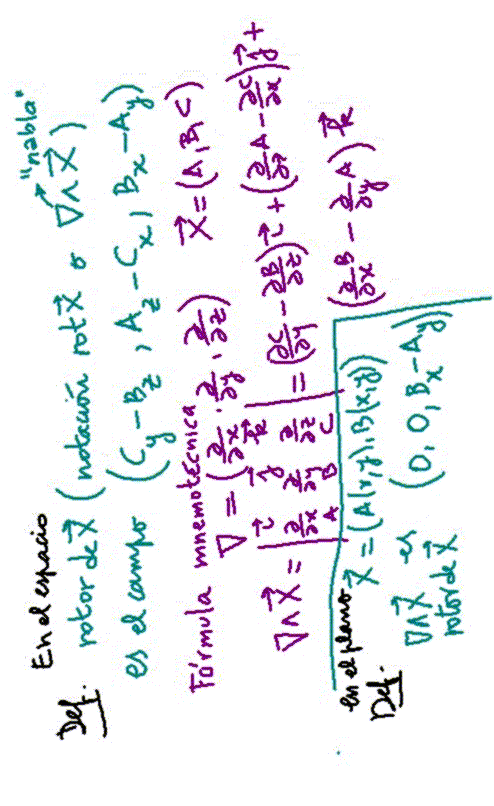 Def. En el espacio
rotor de X⃗ ( notación rot X⃗ o ∇⃗∧X⃗ ) "nabla"
es el campo (C_y − B_z , A_z − C_x , B_x − A_y)
Fórmula mnemotécnica X⃗ = (A, B, C)
∇ = (∂/∂x , ∂/∂y , ∂/∂z)
∇∧X⃗ = | i⃗ j⃗ k⃗ ; ∂/∂x ∂/∂y ∂/∂z ; A B C | = (∂C/∂y − ∂B/∂z) i⃗ + (∂/∂z A − ∂C/∂x) j⃗ +
(∂/∂x B − ∂/∂y A) k⃗
en el plano
Def. X⃗ = (A(x,y), B(x,y))
∇∧X⃗ es (0, 0, B_x − A_y)
rotor de X⃗